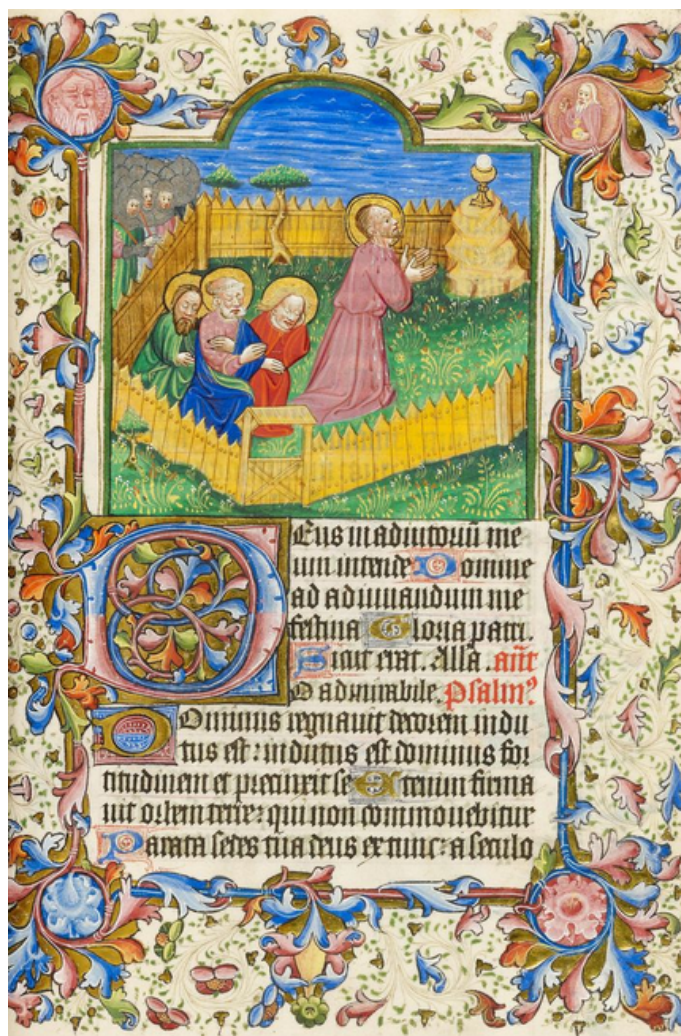 Deus in adiutoriū me
um intende Domine
ad adiuuandum me
festina Gloria patri.
Sicut erat. Allā. añt
O admirabile. Psalm⁹
Dominus regnauit decorem indu
tus est: indutus est dominus for
titudinem et precinxit se Etenim firma
uit orbem terre: qui non commouebitur
Parata sedes tua deus ex tunc: a seculo